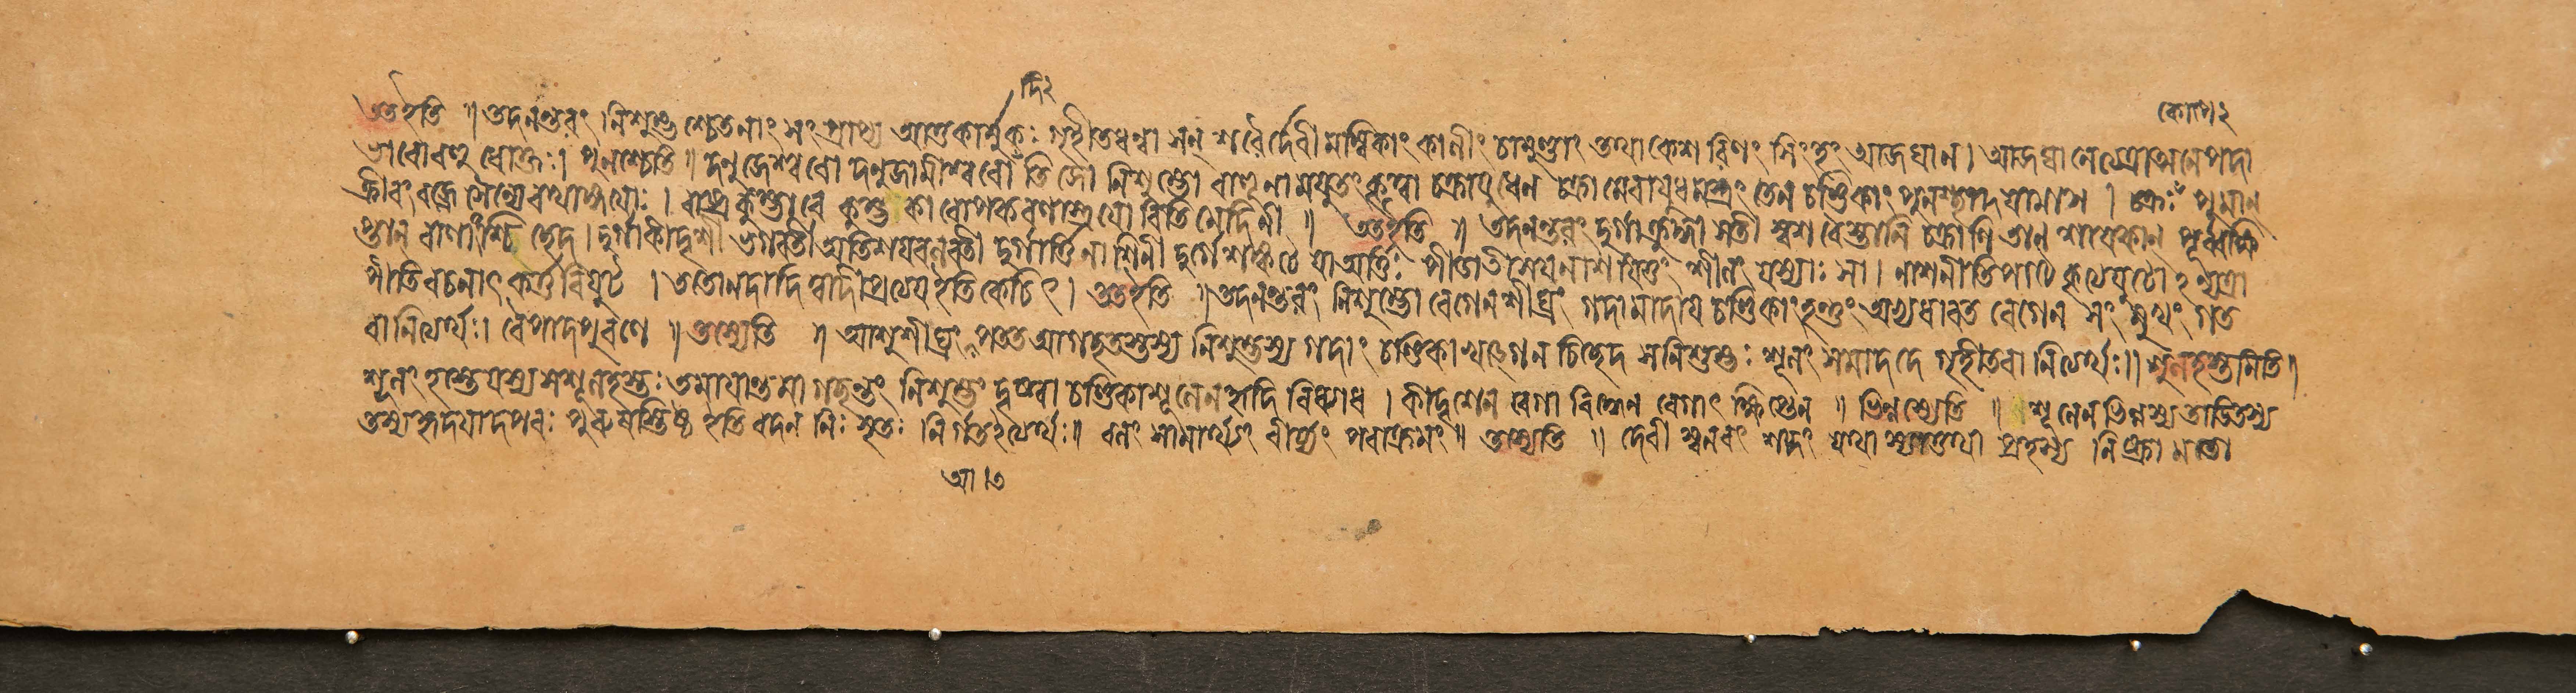 দি২
কোপ২
তত ইতি ॥ তদনন্তরং নিশুম্ভশ্চেতনাং সংপ্রাপ্য আত্তকার্মুকঃ গৃহীতধন্বা সন্ শরৈর্দেবীমম্বিকাং কালীং চামুণ্ডাং তথা কেশরিণং সিংহং আজঘান । আজঘানেত্যত্রাত্মনেপদা
ভাবোবণু ধোক্তঃ । পুনশ্চেতি ॥ দনুজেশ্বরো দনুজানামীশ্বরো দিতিজো নিশুম্ভো বাহূনামযুতং কৃত্বা চক্রাযুধেন চক্রমেবাযুধমস্ত্রং তেন চণ্ডিকাং পুনশ্ছাদযামাস । চক্রঃ পুমান্
ক্লীবং ব্রজে সৈন্যে রথাঙ্গযোঃ । রাষ্ট্রে কুম্ভারে কুম্ভকারোপকরণাস্ত্রযো রিতি মেদিনী ॥ তত ইতি ॥ তদনন্তরং দুর্গা ক্রুদ্ধা সতী স্বশরৈস্তানি চক্রাণি তান্ শাযকান্ পূর্বক্ষি
প্তান্ বাণাংশ্চিচ্ছেদ । দুর্গা কীদৃশী ভগবতী অতিশযবলবতী দুর্গার্ত্তিনাশিনী দুর্গে শঙ্কটে যা আর্ত্তিঃ পীডা তস্যা নাশযিতুং শীলং যস্যাঃ সা । নাশনীতি পাঠে কৃত্যল্যুটো ঽন্যত্রা
পীতি বচনাৎ কর্ত্তরি ল্যুট্ । ততো নদাদিত্বাদীপ্রত্যয ইতি কেচিৎ । তত ইতি ॥ তদনন্তরং নিশুম্ভো বেগেন শীঘ্রং গদামাদায চণ্ডিকাং হন্তুং অভ্যধাবত বেগেন সংমুখং গত
বানিত্যর্থঃ । বৈ পাদপুরণে ॥ তস্যেতি ॥ আশু শীঘ্রং পতত আগচ্ছতস্তস্য নিশুম্ভস্য গদাং চণ্ডিকা খড্গেন চিচ্ছেদ স নিশুম্ভঃ শূলং সমাদদে গৃহীতবানিত্যর্থঃ ॥ শূলহস্তমিতি ॥
শূলং হস্তে যস্য স শূলহস্তঃ তমাযান্তমাগচ্ছন্তং নিশুম্ভং দৃষ্ট্বা চণ্ডিকা শূলেন হৃদি বিব্যাধ । কীদৃশেন বেগাবিদ্ধেন বেগাৎ ক্ষিপ্তেন ॥ ভিন্নস্যেতি ॥ শূলেন ভিন্নস্য তাডিতস্য
তস্য হৃদযাদপরঃ পুরুষস্তিষ্ঠ ইতি বদন্ নিঃসৃতঃ নির্গত ইত্যর্থঃ ॥ বলং সামর্থ্যং বীর্য্যং পরাক্রমং ॥ তস্যেতি ॥ দেবী স্বনবৎ শব্দং যথা স্যাত্তথা প্রহস্য নিষ্ক্রামতো
আ ।৩